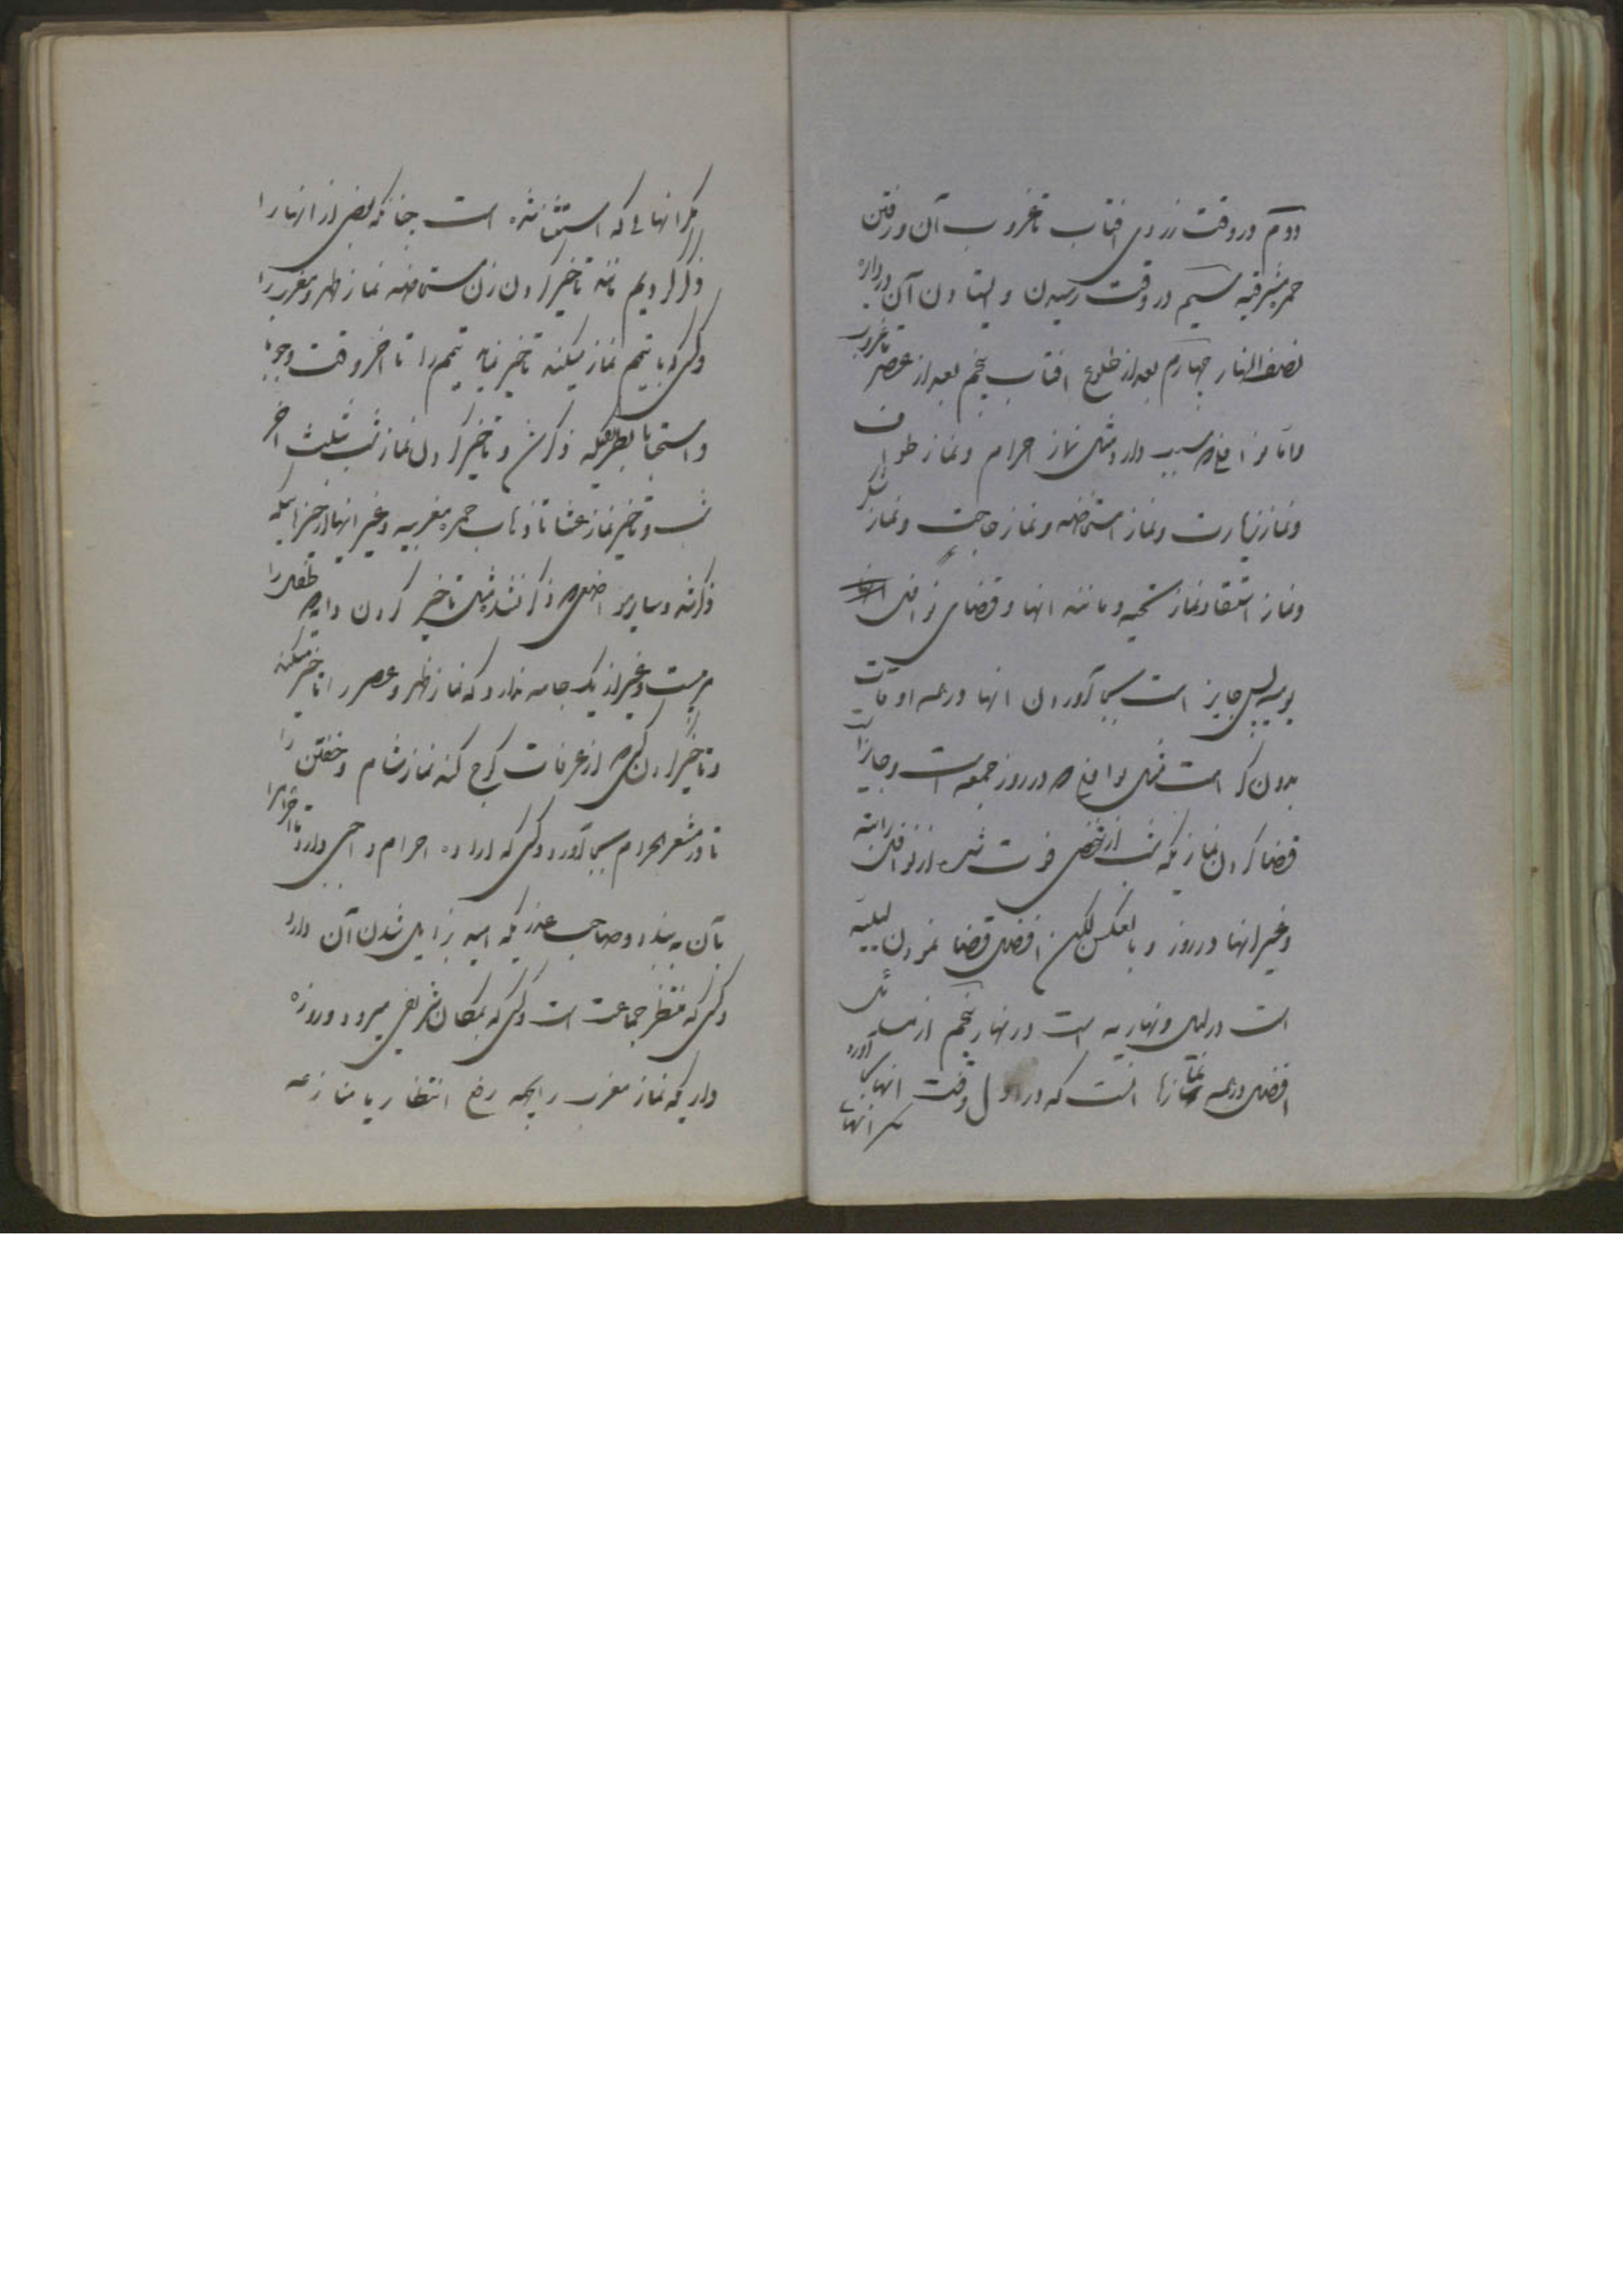 دوم در وقت زردی افتاب تا غروب آن و رفتن
حمره مشرقیه سیم در وقت رسیدن و ایستادن آن در دایره
نصف النهار چهارم بعد از طلوع افتاب پنجم بعد از عصر تا غروب
و اما نوافلی که سبب دارد مثل نماز احرام و نماز طواف
و نماز زیارت و نماز استخاضه و نماز حاجت و نماز شکر
و نماز استسقا و نماز تحیه و مانند انها و قضای نوافل
یومیه پس جایز است بجا آوردن انها در همه اوقات
بدون کراهت مثل نوافلی که در روز جمعه است و جایز است
قضا کردن نمازیکه شب از شخصی فوت شده از نوافل راتبه
و غیر انها در روز و بالعکس لکن افضل قضا نمودن لیلیه
است در لیل و نهاریه است در نهار پنجم از مسائل
افضل در همه نمازها انست که در اول وقت انها بجا آورد
مگر انهائی که استثنا شده است چنانکه بعضی از انها را
ذکر کردیم مانند تاخیر کردن زن مستحاضه نماز ظهر و مغرب را
و کسی که با تیمم نماز میکند تاخیر نماید تیمم را تا اخر وقت وجوبا
و استحبابا بطریقیکه ذکر شد و تاخیر کردن نماز شب بثلث اخر
شب و تاخیر نماز عشا تا ذهاب حمره مغربیه و غیر انها از چیزهائیکه
ذکر شد و سایر مواضعی که ذکر نشد مثل تاخیر کردن دایه که طفل را
مربیست و غیر از یک جامه ندارد که نماز ظهر و عصر را تاخیر میکند
و تاخیر کردن کسی که از عرفات کوچ کند نماز شام و خفتن را
تا در مشعر الحرام بجا آورد و کسی که اراده احرام واجبی دارد تا احرام را
بآن به بندد و صاحب عذریکه امید بزایل شدن آن دارد
و کسی که منتظر جماعت است و کسی که بمکان شریفی میرود و روزه
داریکه نماز مغرب را بجهه رفع انتظار یا منازعه